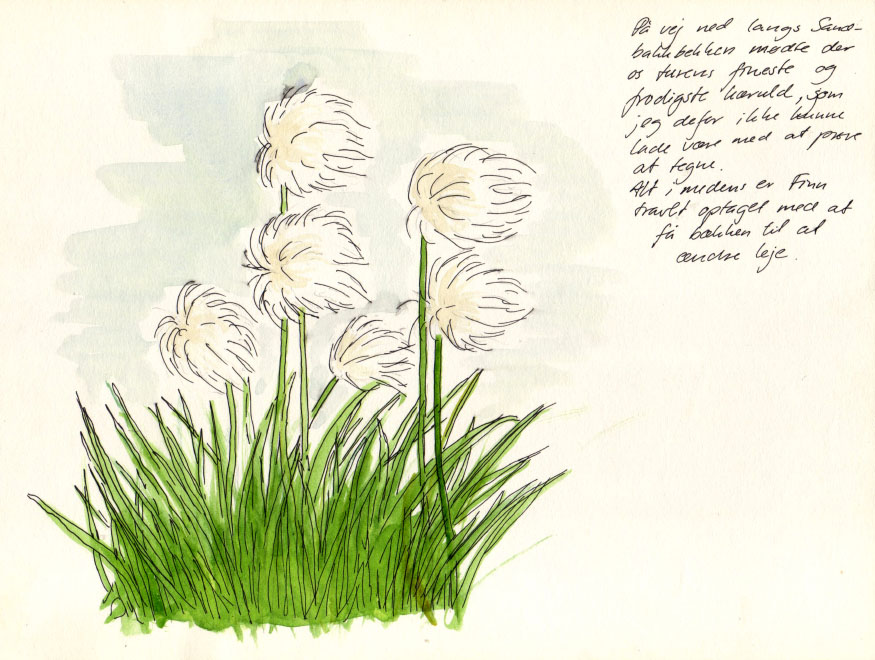 På vej ned langs Sand-
bakkbekken mødte der
os turens fineste og
frodigste kæruld, som
jeg defor ikke kunne
lade være med at prøve
at tegne.
Alt imedens er Finn
travlt optaget med at
få bækken til at
ændre leje.